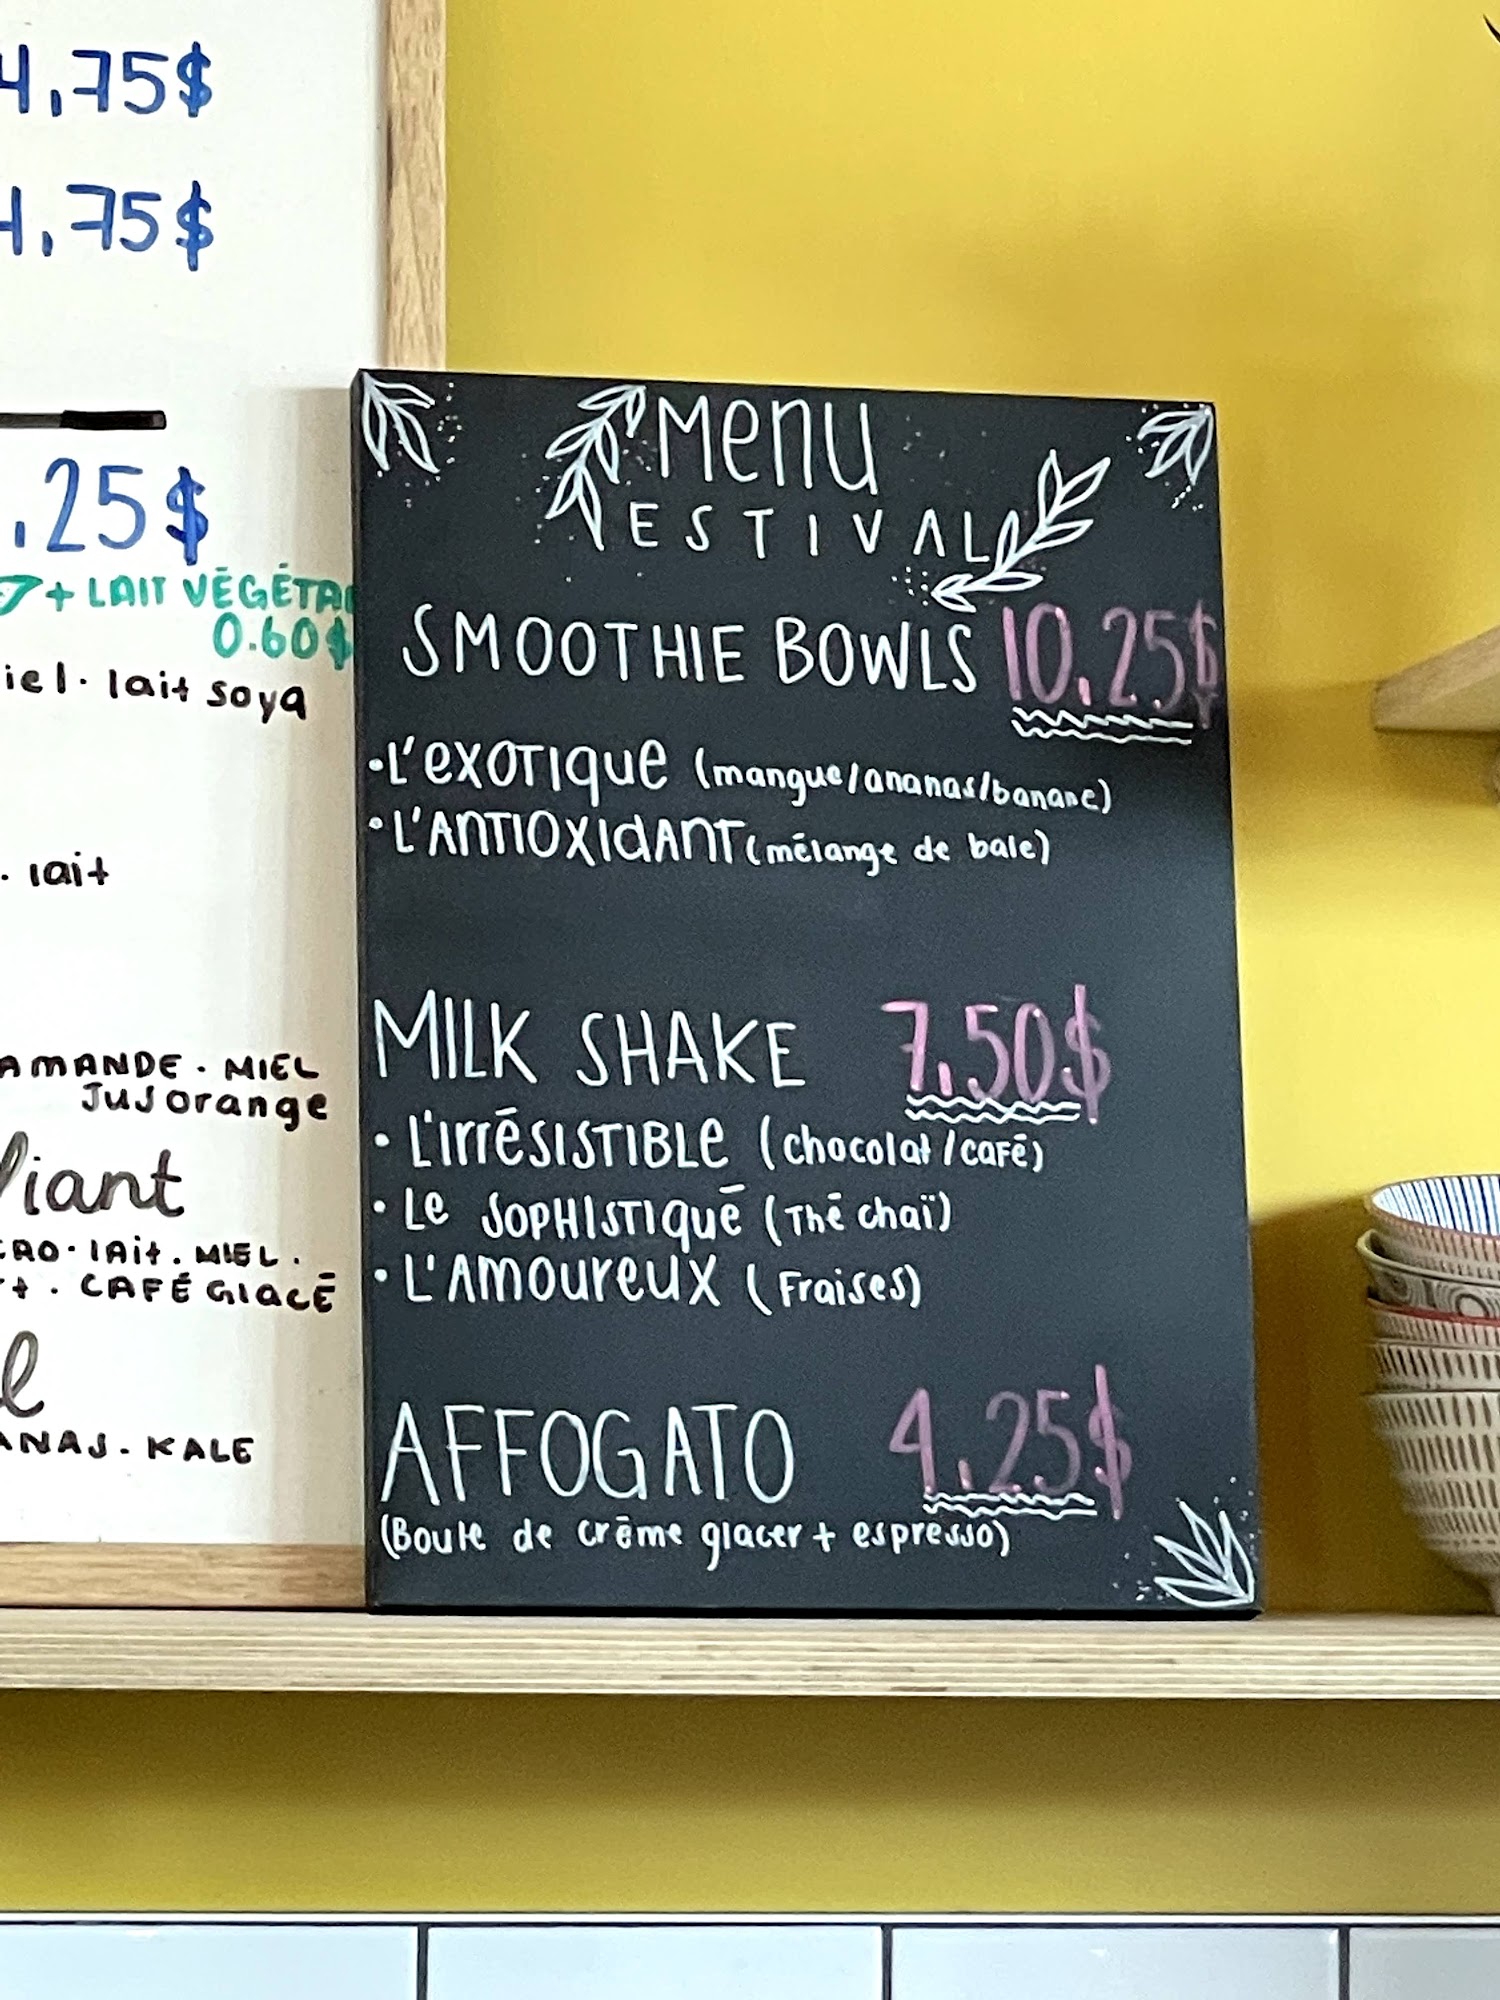 4,75$
4,75$
,25$
+ LAIT VÉGÉTA
0.60$
iel. lait soya
. lait
AMANDE. MIEL
JUS orange
liant
CAO. lait. MIEL.
t. CAFÉ GlacÉ
l
ANAS. KALE
Menu
ESTIVAL
SMOOTHIE BOWLS 10,25$
•L'exotique (mangue/ananas/banane)
•L'Antioxidant (mélange de baie)
MILK SHAKE 7,50$
• L'irrésistible (chocolat/café)
• Le sophistiqué (Thé chaï)
• L'Amoureux (Fraises)
AFFOGATO 4,25$
(Boule de crème glacer + espresso)